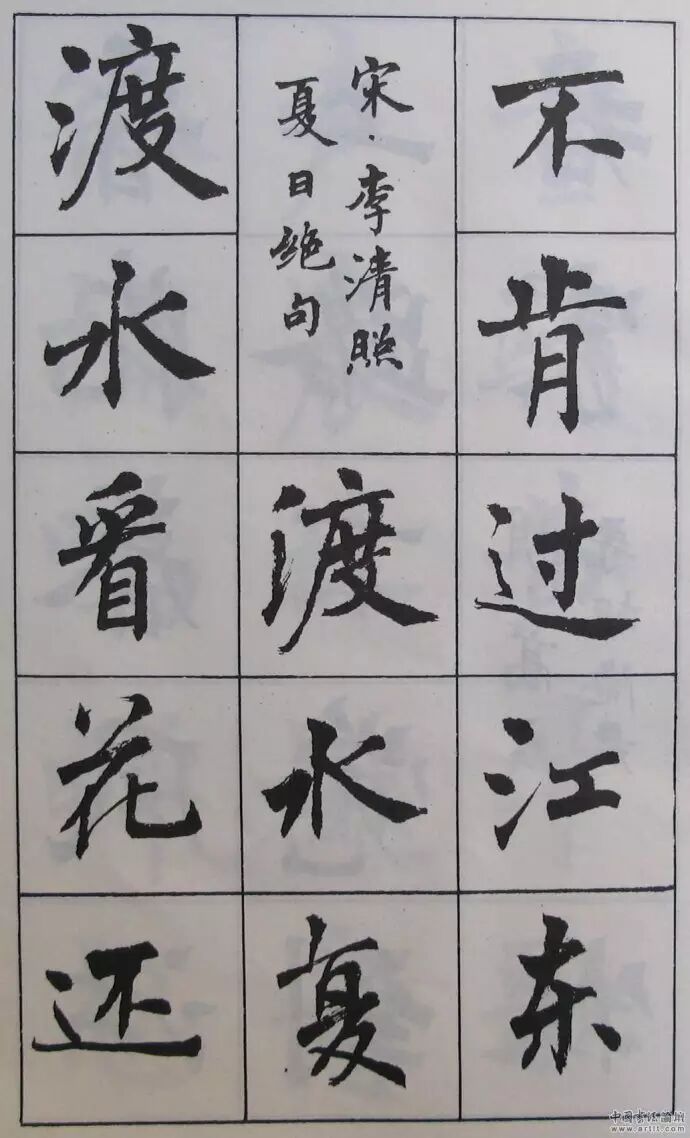 不肯过江东
宋·李清照
夏日绝句
渡水复
渡水看花还
中国书法论坛